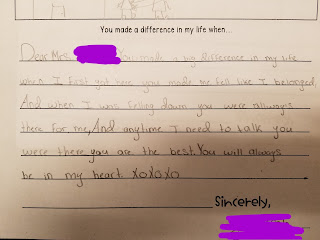 You made a difference in my life when...
Dear Mrs. You made a big difference in my life
when I first got here you made me fell like I belonged.
And when I was felling down you were allways
there for me, And anytime I need to talk you
were there you are the best. You will always
be in my heart. XoXoXo
Sincerely,